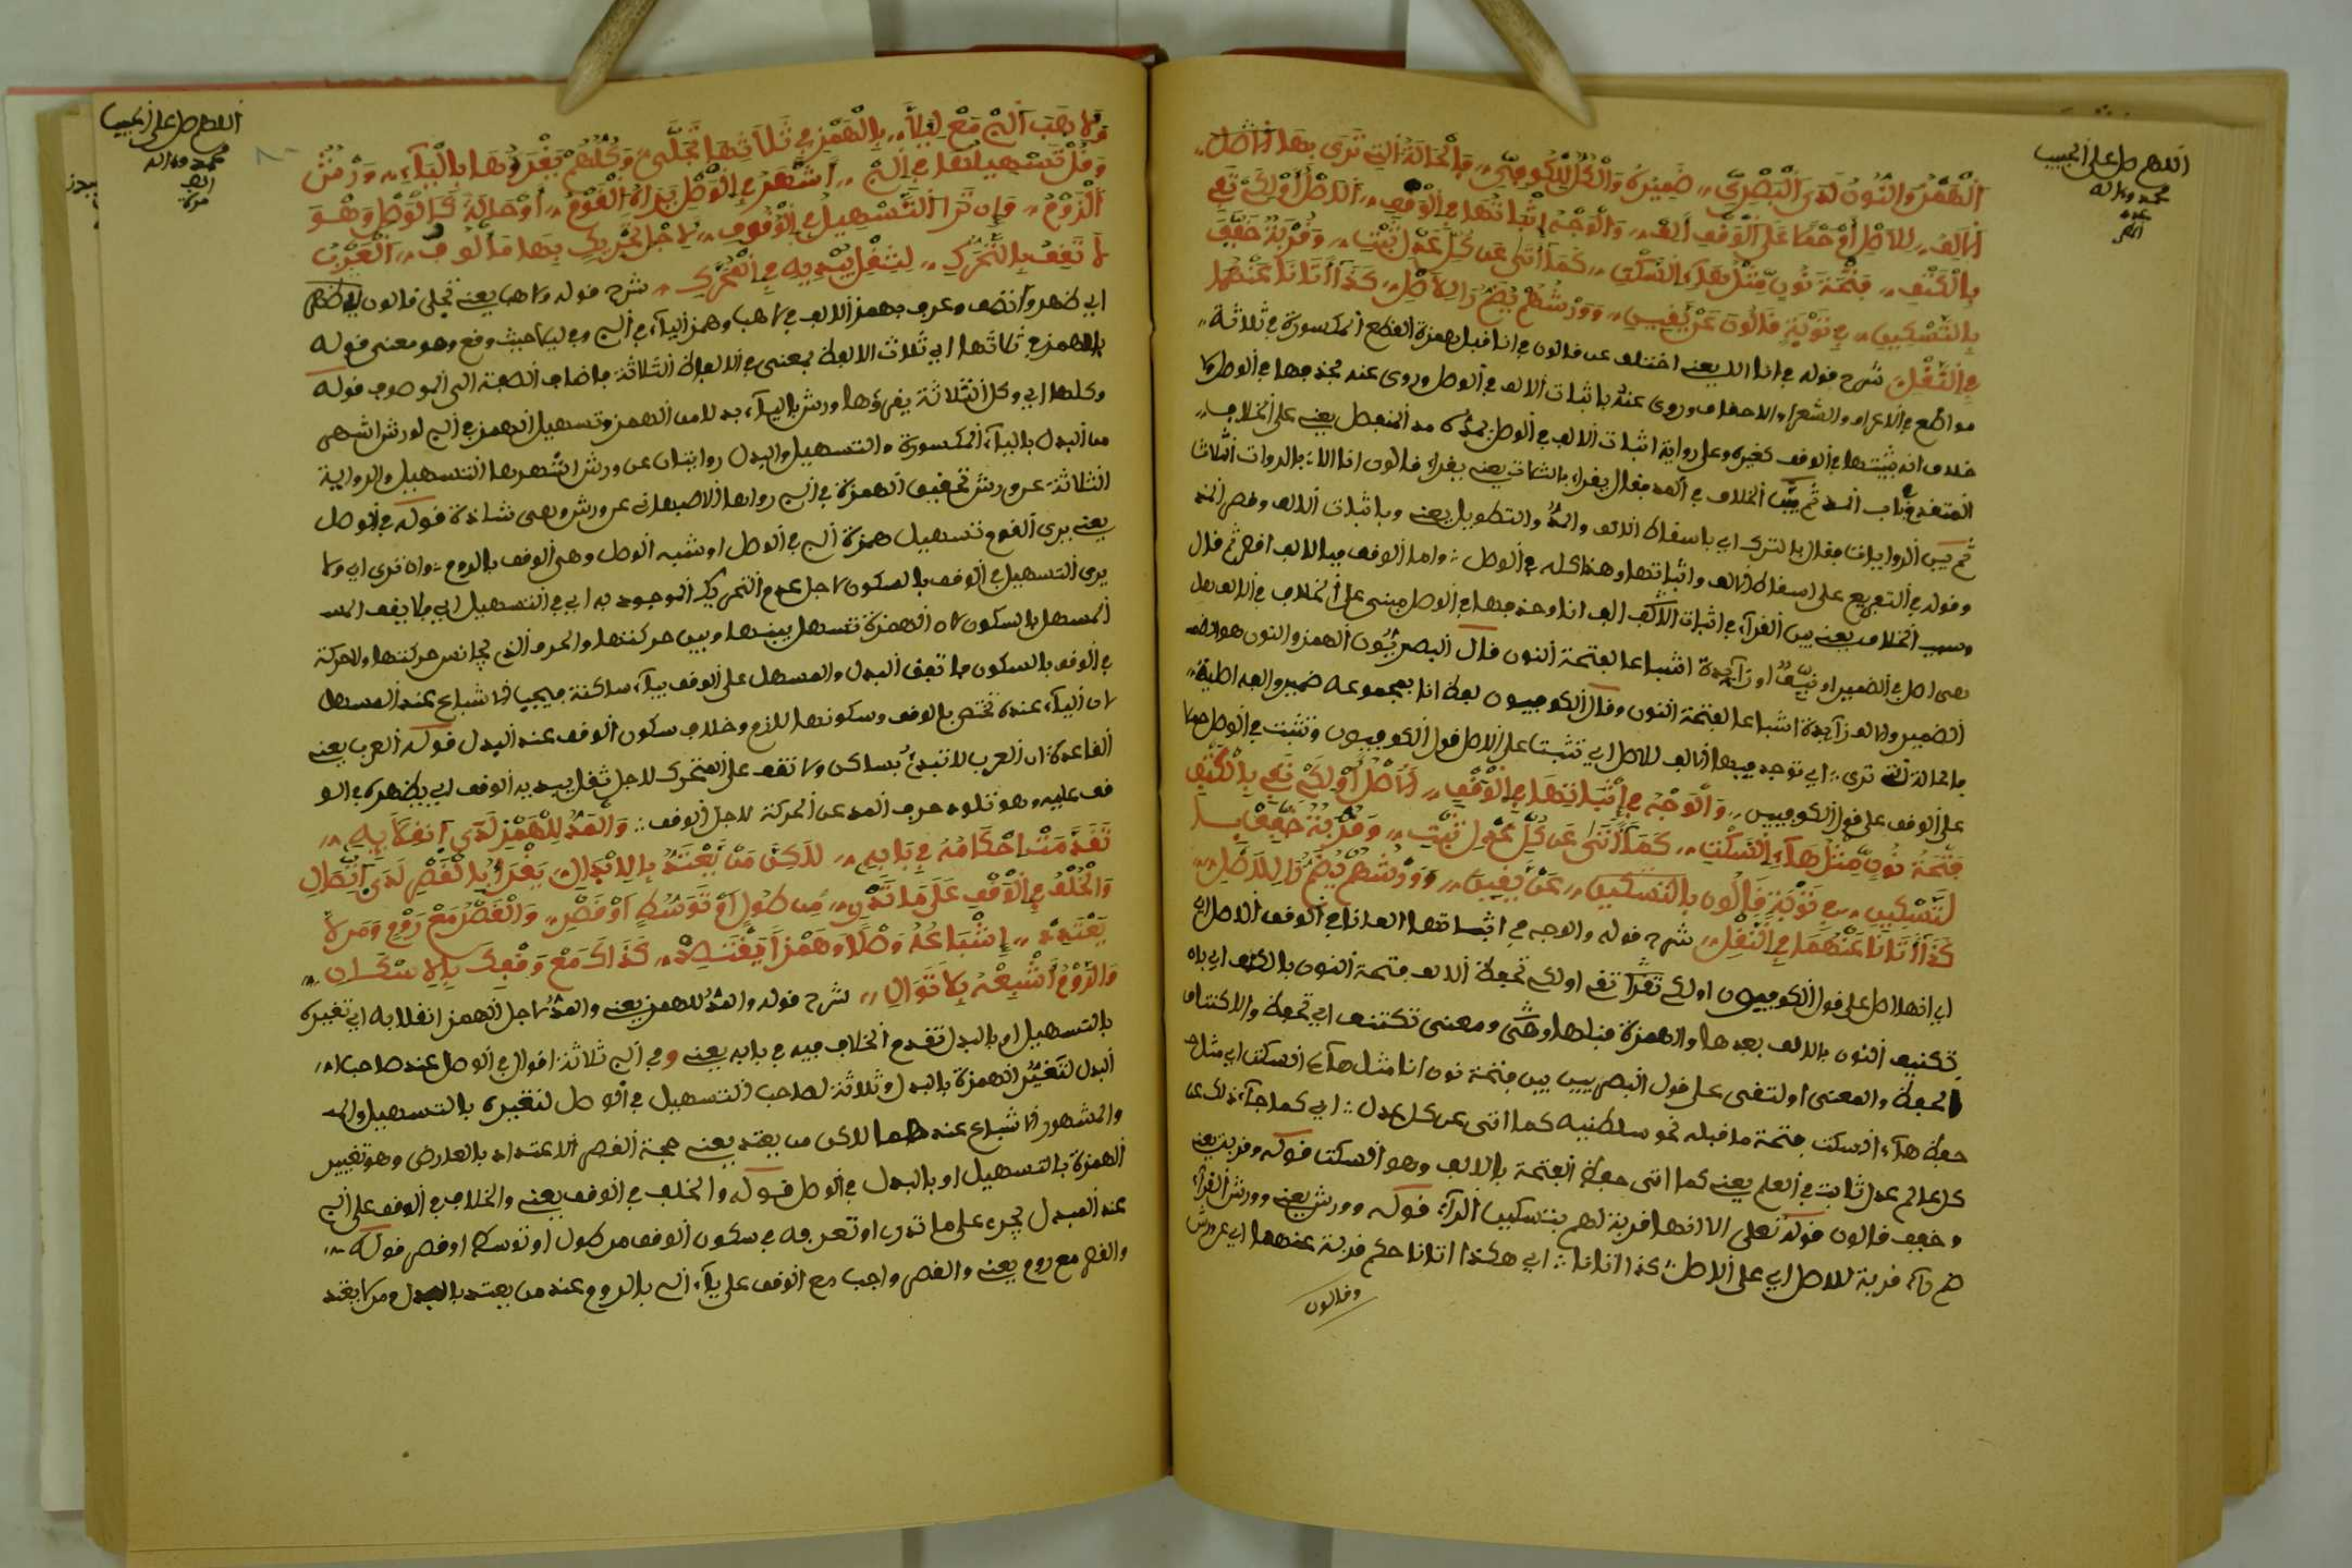 اللهم صل على الحبيب
محمد وءاله
الهمز والنون لدى البصري ،، ضميره والكل للكوفي ،، فالحالة التي ترى بها الاصل ،،
الالف ،، للاصل أو حملا على الوقف ألف ،، والوجه في إثباتها في الوقف ،، الاصل أو لكي تفي
بالكنف ،، فتحة نون مثل هاء السكت ،، كما أتى عن كل عدل ثبت ،، وقربة خفف
بالتسكين ،، في توبة قالون عن يقين ،، وورشهم يضم راء الاصل ،، كذا أتانا عنهما
في النقل ،، شرح قوله في انا الا يعني اختلف عن قالون في انا قبل همزة القطع المكسورة في ثلاثة ،،
مواضع في الاعراف والشعراء والاحقاف وروى عنه باثبات الالف في الوصل وروى عنه بحذفها في الوصل ولا
خلاف انه يثبتها في الوقف كغيره وعلى رواية اثبات الالف في الوصل يمده مد المنفصل يعني على الخلاف ،،
المتقدم في باب المد ثم بين الخلاف في المد فقال يقرأ بالثبات يعني يقرأ قالون انا الا بالروايات الثلاث
ثم بين الروايات فقال بالترك اي باسقاط الالف والمد والتطويل يعني وباثبات الالف وقصر المد
وقوله في التفريع على اسقاط الالف واثباتها وهذا كله في الوصل : واما الوقف فبالالف افصح ثم قال
وسبب الخلاف يعني بين القراء في اثبات الالف الف انا وحذفها في الوصل مبني على الخلاف في الالف هل
هي اصل في الضمير او زائدة اشباعا لفتحة النون قال البصريون الهمز والنون هو الضمير
الضمير والالف زائدة اشباعا لفتحة النون وقال الكوفيون لفظ انا بمجموعه ضمير والفه اصلية ،،
فالحالة التي ترى : اي توجد فيها الالف للاصل اي تثبت على الاصل قول الكوفيون وتثبت في الوصل حملا
على الوقف على قول الكوفيين ،، والوجه في إثباتها في الوقف ،، الاصل أو لكي تفي بالكنف
فتحة نون مثل هاء السكت ،، كما أتى عن كل عدل ثبت ،، وقربة خفف
لتسكين ،، في توبة قالون بالتسكين ،، عن يقين ،، وورشهم يضم راء للاصل ،،
كذا أتانا عنهما في النقل ،، شرح قوله والوجه في اثباتها الف انا في الوقف الاصل اي
اي انها اصل على قول الكوفيون او لكي تقرأ تفي او لكي تحفظ الالف فتحة النون بالكنف اي بان
تكنف النون بالالف بعدها والهمزة قبلها ومعنى تكتنف اي تحفظ والاكتناف
الحفظ والمعنى او لتفي على قول البصريين بين فتحة نون انا مثل هاء السكت اي مثل
حفظ هاء السكت فتحة ما قبله نحو سلطنيه كما اتى عن كل عدل : اي كما جاء ذلك عن
كل عالم عدل ثابت في العلم يعني كما اتى حفظ الفتحة بالالف وهو السكت قوله وقربة يعني
وخفف قالون قوله تعلى الا انها قربة لهم بتسكين الراء قوله وورش يعني وورش القراء
ضم راء قربة للاصل اي على الاصل : كذا اتانا : اي هكذا اتانا حكم قربة عنهما اي عن ورش
وقالون
اللهم صل على الحبيب
محمد وءاله
وقل لأهب اللاي مع ليلا ،، بالهمز في ثلاثها تجلى ،، وكلهم يقرؤها بالياء ،، ورش
وقل تسهيلها في اللاي ،، أشهر في الوصل يراه القوم ،، أو حالة كالوصل وهو
الروم ،، وإن ترا التسهيل في الوقوف ،، لاجل تحريك بها مألوف ،، العرب
لا تقف بالتحرك ،، لثقل يبديه في المحرك ،، شرح قوله ولاهب يعني تجلى قالون
اي ظهر واتضح وعرف بهمز الالف في لاهب وهمز الياء في اللاي وفي ليلا حيث وقع وهو معنى قوله
بالهمز في ثلاثها اي ثلاث الالفاظ بمعنى في الالفاظ الثلاثة فاضاف الصفة الى الموصوف قوله
وكلها اي وكل الثلاثة يقرؤها ورش بالياء بدلا من الهمز وتسهيل الهمز في اللاي لورش اشهر
من البدل بالياء المكسورة والتسهيل والبدل روايتان عن ورش اشهرها التسهيل والرواية
الثالثة عن ورش تحقيق الهمزة في اللاي رواها الاصبهاني عن ورش وهي شاذة قوله في الوصل
يعني يرى القوم وتسهيل همزة اللاي في الوصل او شبه الوصل وهي الوقف بالروم : وان ترى اي ولا
يرى التسهيل في الوقف بالسكون لاجل عدم التحريك الموجود به اي في التسهيل اي فلا يقف
المسهل بالسكون لان الهمزة تسهل بينها وبين حركتها والحرف الذي يجانس حركتها ولا حركة
في الوقف بالسكون فاتفق المبدل والمسهل على الوقف بياء ساكنة فيجب الاشباع عند المسهل
لان الياء عنده تختص بالوقف وسكونها لازم وخلاف سكون الوقف عند المبدل قوله العرب يعني
القاعدة ان العرب لا تبدئ بساكن ولا تقف على المتحرك لاجل ثقل يبديه الوقف اي يظهره في الو
قف عليه وهو تلوه حرف المد عن الحركة لاجل الوقف : والمد للهمز لدى انقلابه ،،
تقدمت احكامه في بابه ،، للكن من يعتد بالابدال يقرأ بالقصر لدى اتصال
والخلف في الوقف على ما تدري ،، من طول أو توسط أو قصر ،، والقصر مع روم ومن لا
يعتد ،، إشباعه وصلا وهمزا يفتدى ،، كذاك مع وقفك بالاسكان ،،
والروم أشبعه بلا توان ،، شرح قوله والمد للهمز يعني والمد لاجل الهمز انقلابه اي تغييره
بالتسهيل او بالبدل تقدم الخلاف فيه في بابه يعني وفي اللاي ثلاثة اقوال في الوصل عند صاحب ،،
البدل لتغيير الهمزة بالبدل وثلاثة لصاحب التسهيل في الوصل لتغييره بالتسهيل
والمشهور الاشباع عندهما للاكن من يعتد يعني حجة القصر الاعتداد بالعارض وهو تغيير
الهمزة بالتسهيل او بالبدل في الوصل قوله والخلف في الوقف يعني والخلاف في الوقف على اللاي
عند المبدل يجري على ما تدري او تعرفه في سكون الوقف من طول او توسط او قصر قوله ،،
والقصر مع روم يعني والقصر واجب مع الوقف على ياء اللاي بالروم عند من يعتد بالبدل ومن لا يعتد